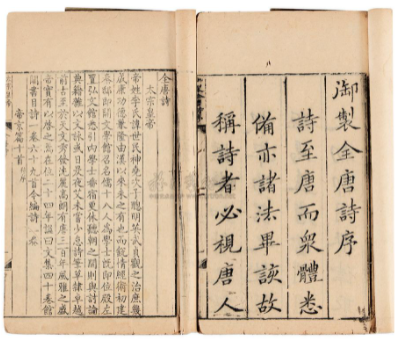 御製全唐詩序
詩至唐而衆體悉
備亦諸法畢該故
稱詩者必視唐人
全唐詩
太宗皇帝
帝姓李氏諱世民神堯次子聰明英武貞觀之治庶幾
成康功德兼隆由漢以來未之有也而銳情經術初建
秦邸即開文學館召名儒十八人爲學士既即位殿左
置弘文館悉引內學士番宿更休聽朝之間則與討論
典籍雜以文詠或日昃夜艾未嘗少怠詩筆草隸卓越
前古至於天文秀發沈麗高朗有唐三百年風雅之盛
帝實有以啟之焉在位二十四年諡曰文集四十卷館
閣書目詩一卷六十九首今編詩一卷
帝京篇十首并序